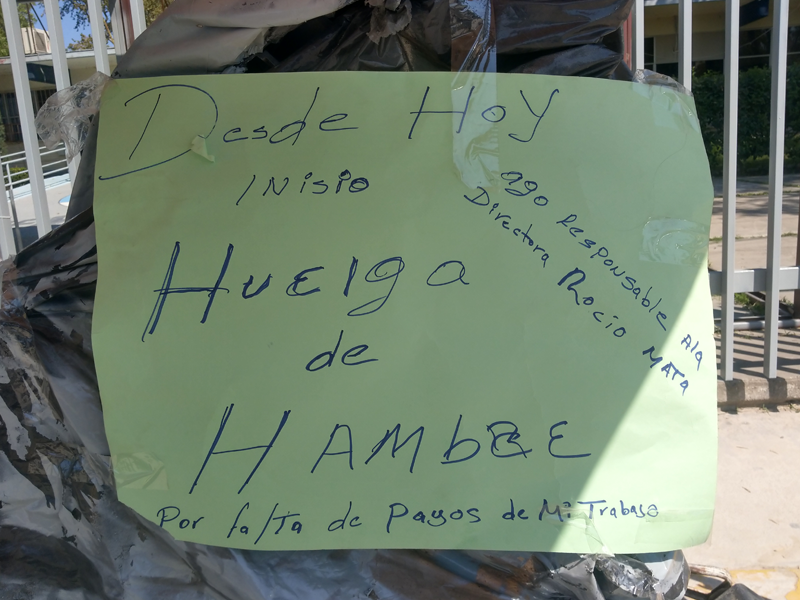 Desde Hoy
INisio
ago Responsable Ala
Directora Rocio MATa
HUElga
de
HAMbRE
Por falTa de Pagos de Mi Trabaso